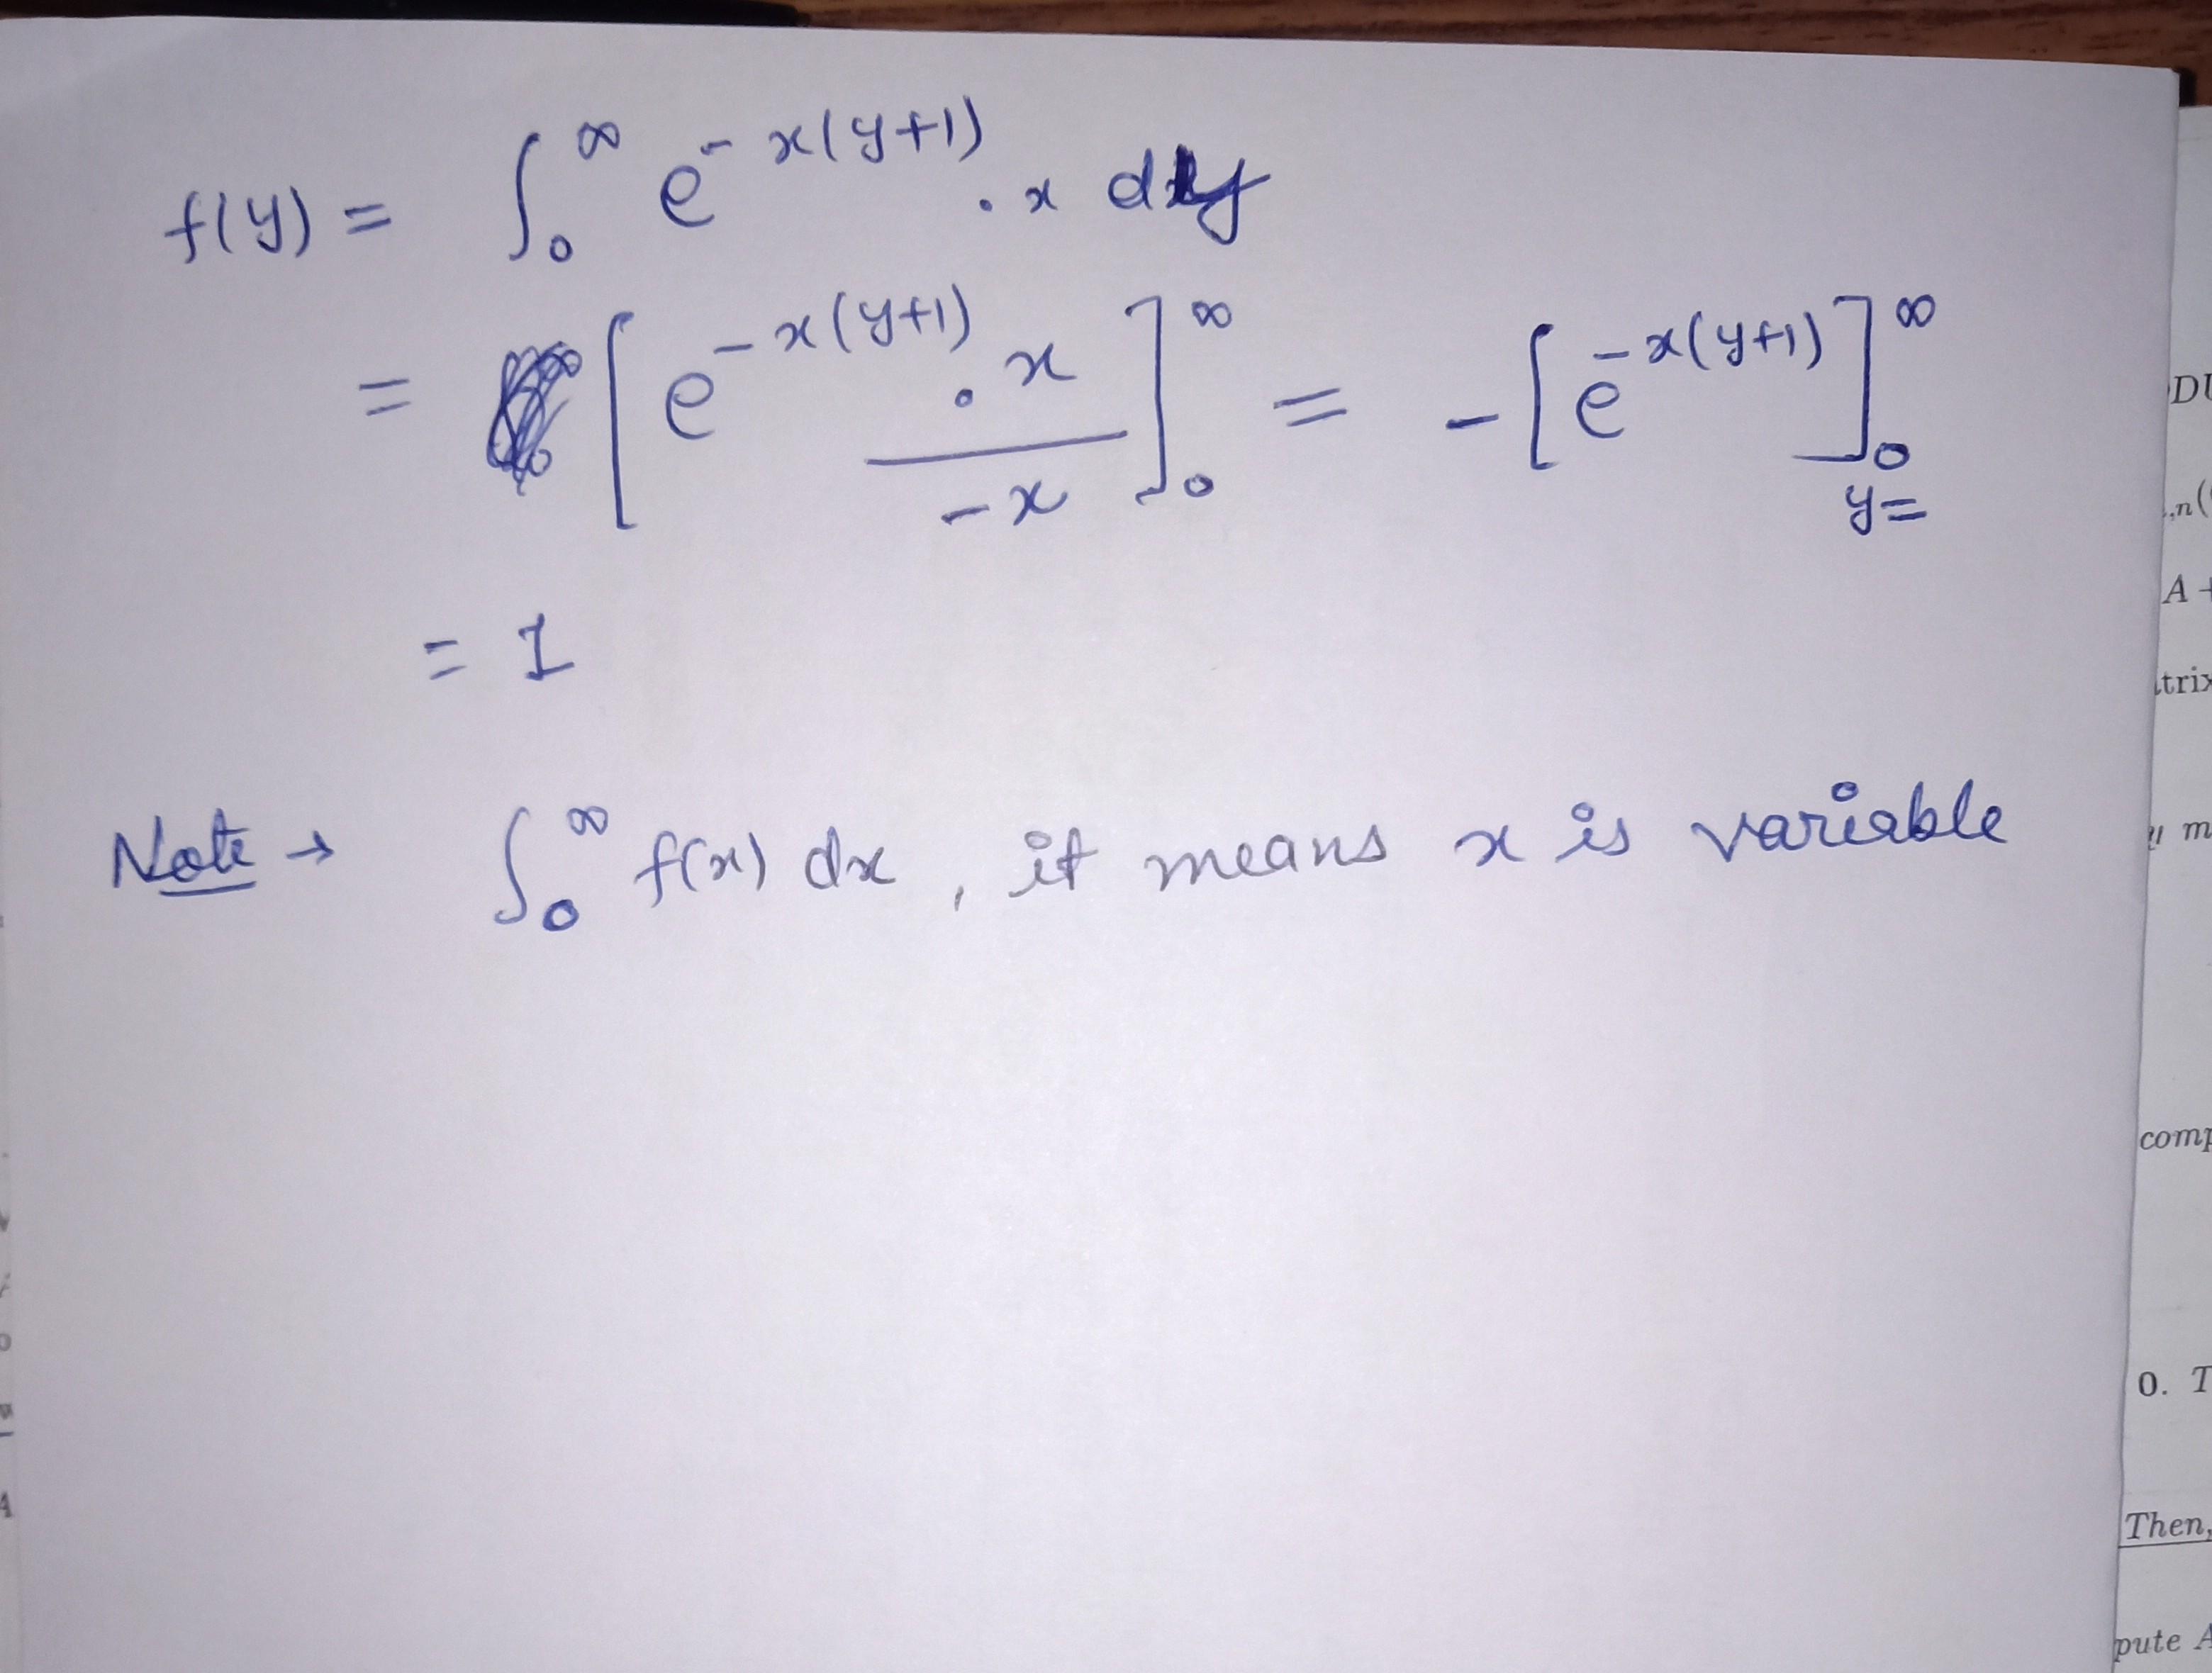 f(y) = ∫₀^∞ e^{-x(y+1)} . x dy
= [ e^{-x(y+1)} . x / -x ]₀^∞ = -[ e^{-x(y+1)} ]_{y=0}^∞
= 1
Note → ∫₀^∞ f(x) dx , it means x is variable
DU
,n(
A +
trix
m
comp
0. T
Then,
pute A